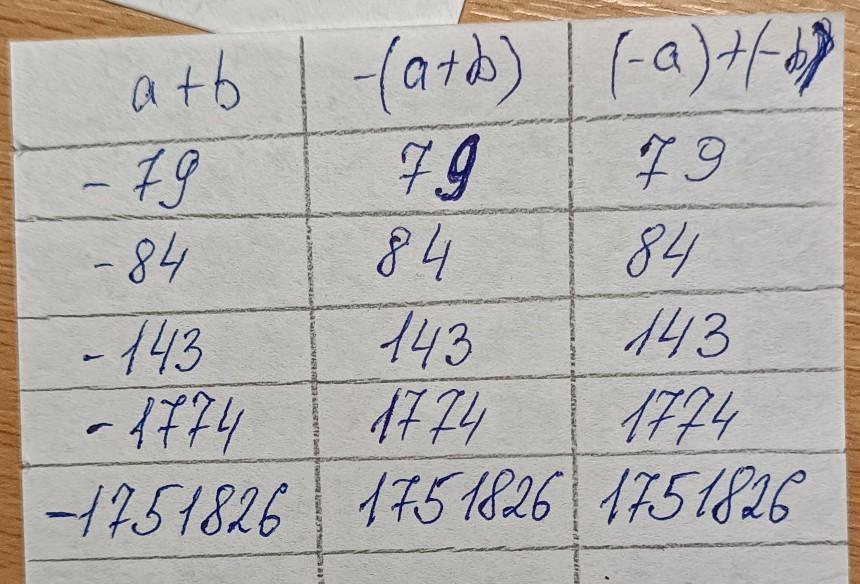 a+b -(a+b) (-a)+(-b)
-79 79 79
-84 84 84
-143 143 143
-1774 1774 1774
-1751826 1751826 1751826